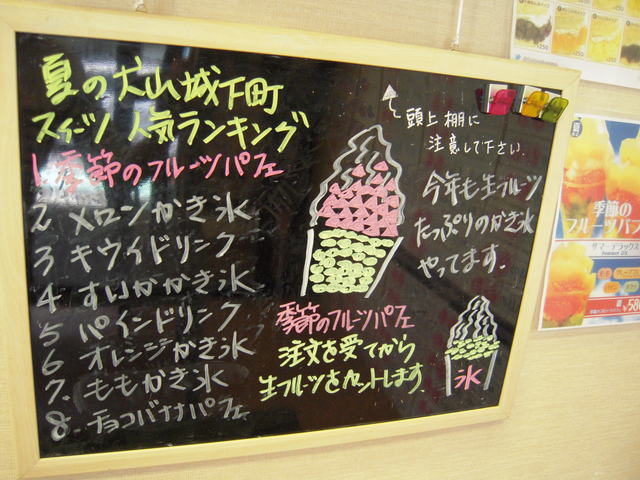 夏の犬山城下町
スイーツ 人気ランキング
1 季節のフルーツパフェ
2 メロンかき氷
3 キウイドリンク
4 すいかかき氷
5 パインドリンク
6 オレンジかき氷
7. ももかき氷
8. チョコバナナパフェ
頭上棚に
注意して下さい.
今年も生フルーツ
たっぷりのかき氷
やってます.
季節のフルーツパフェ
注文を受てから
生フルーツをカットします
氷
季節の
フルーツパフ
サマーデラックス
¥58